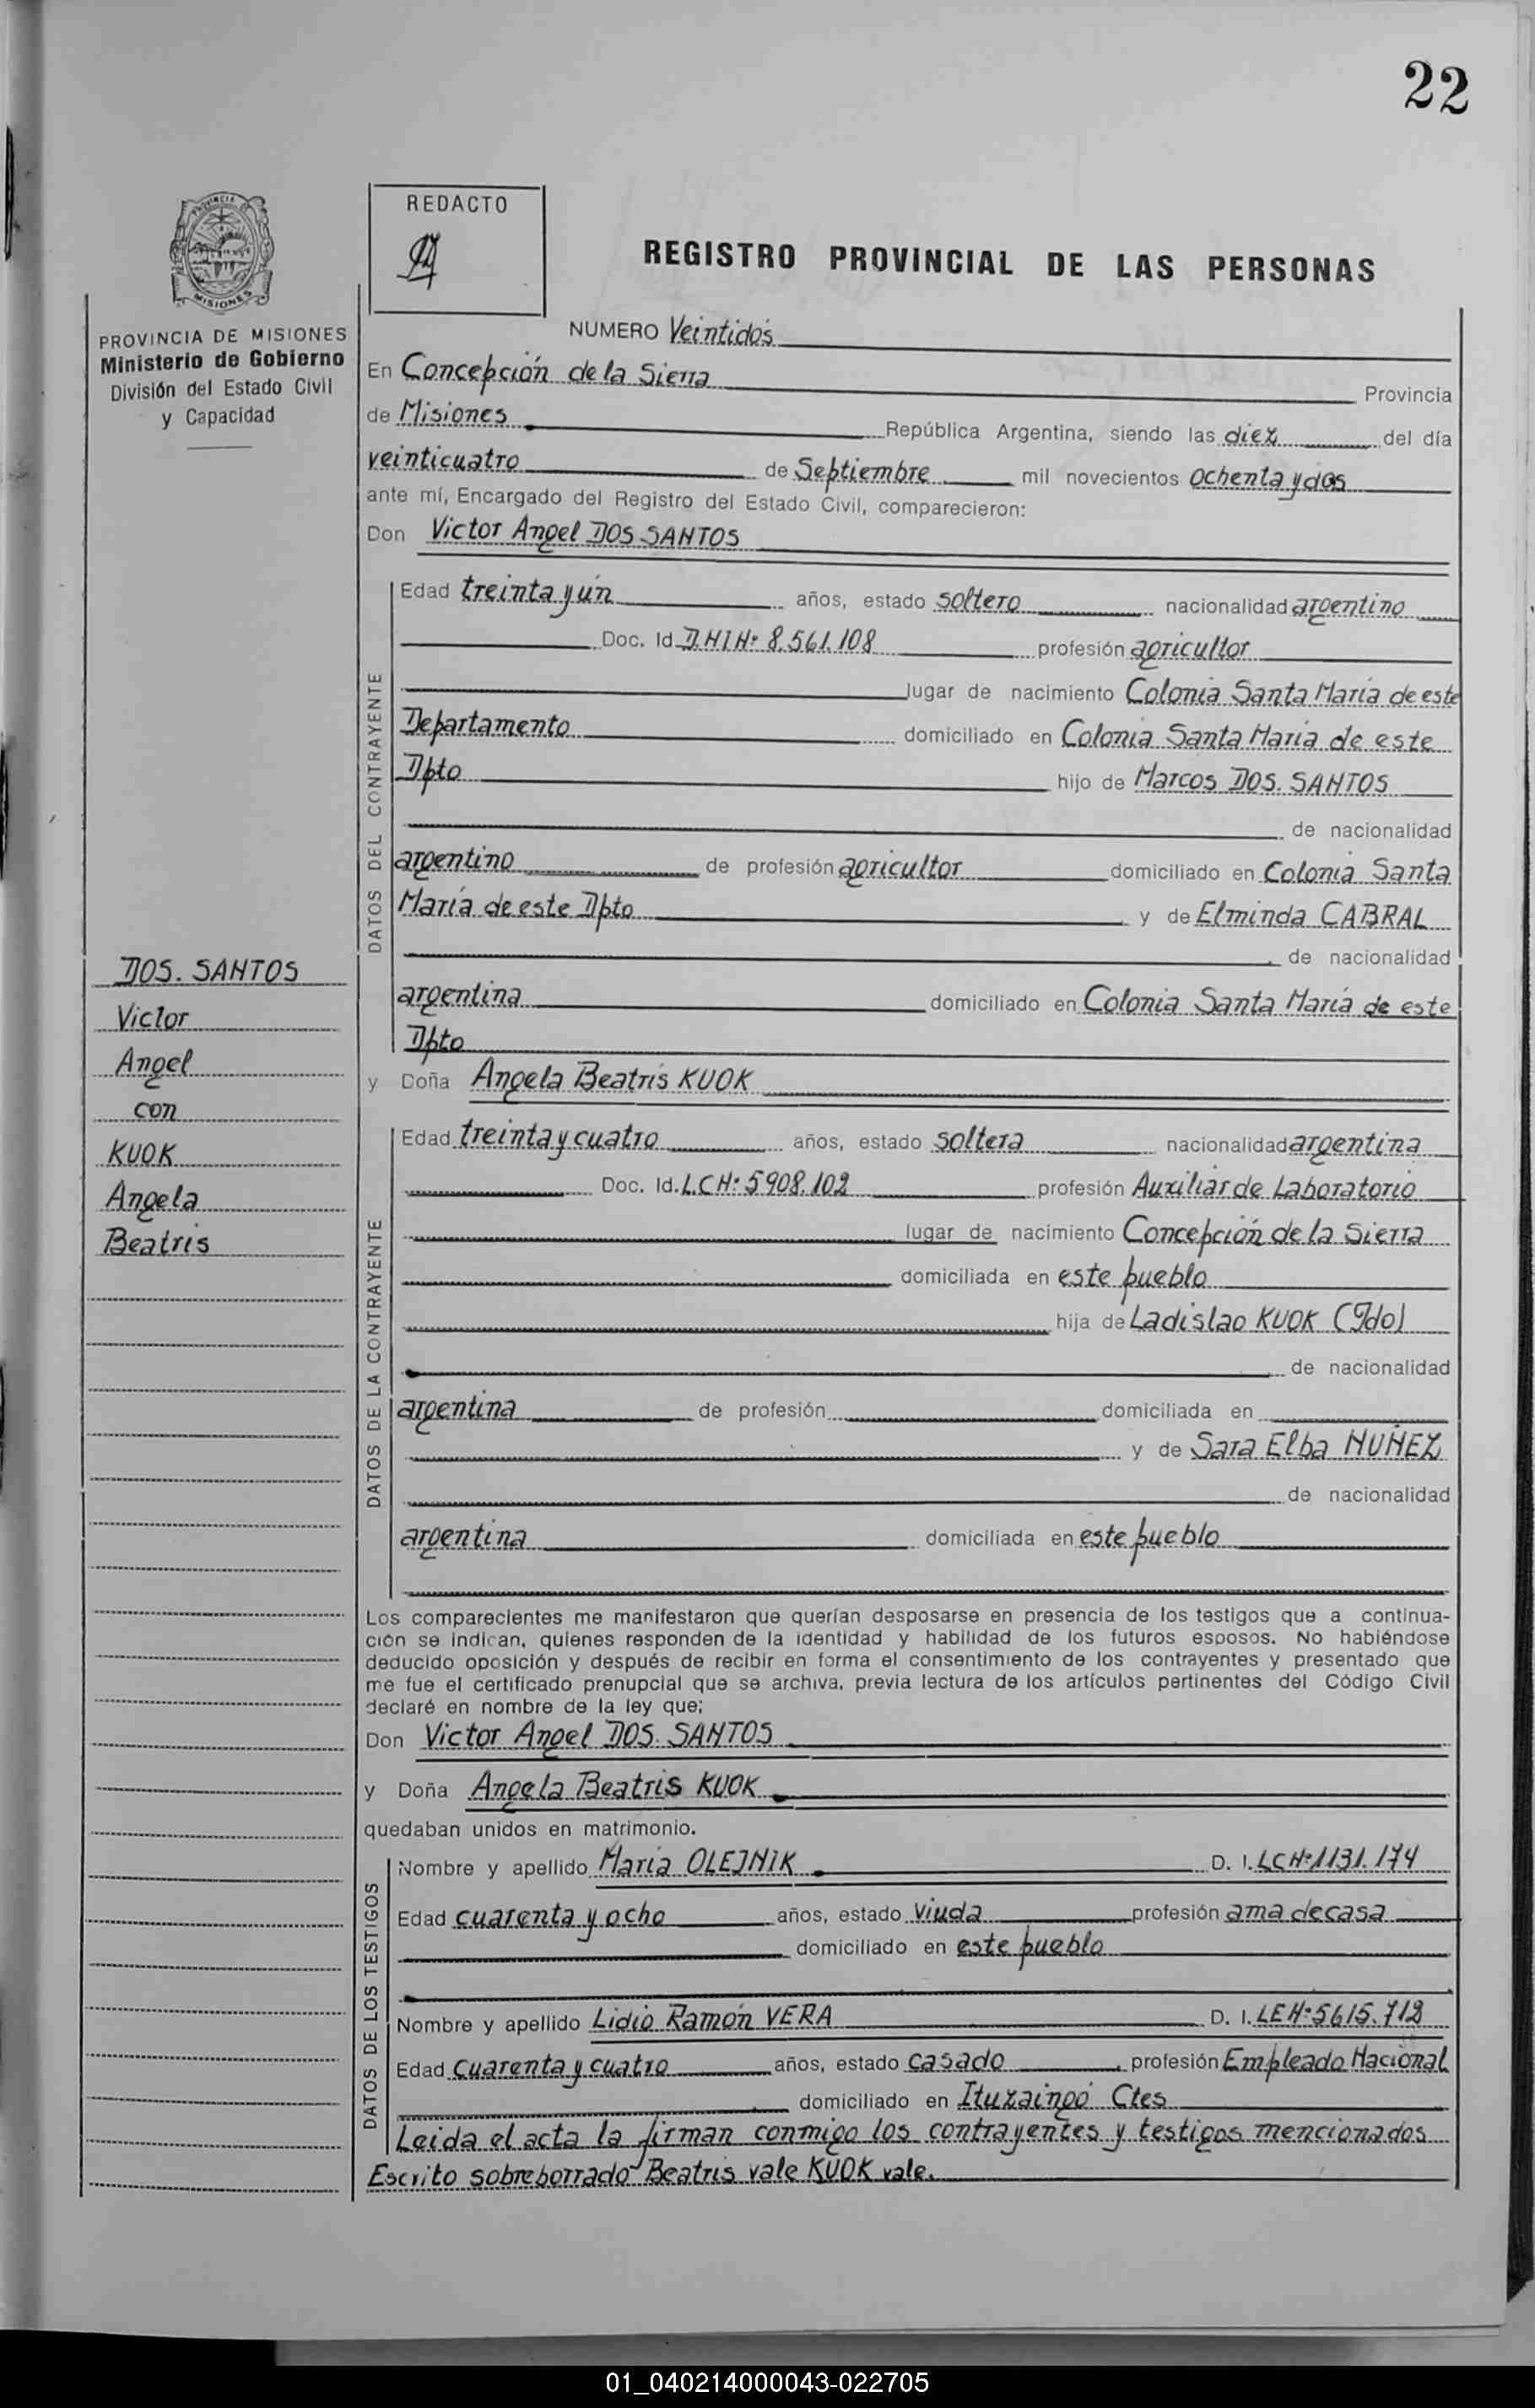 22
REDACTO
REGISTRO PROVINCIAL DE LAS PERSONAS
PROVINCIA DE MISIONES
Ministerio de Gobierno
División del Estado Civil
y Capacidad
NUMERO Veintidós
En Concepción de la Sierra Provincia
de Misiones República Argentina, siendo las diez del día
veinticuatro de Septiembre mil novecientos ochenta y dos
ante mí, Encargado del Registro del Estado Civil, comparecieron:
Don Victor Angel DOS SANTOS
DATOS DEL CONTRAYENTE
Edad treinta y un años, estado soltero nacionalidad argentino
Doc. Id. DNI Nº 8.561.108 profesión agricultor
lugar de nacimiento Colonia Santa María de este
Departamento domiciliado en Colonia Santa María de este
Dpto hijo de Marcos DOS. SANTOS
de nacionalidad
argentino de profesión agricultor domiciliado en Colonia Santa
María de este Dpto y de Elminda CABRAL
de nacionalidad
argentina domiciliado en Colonia Santa María de este
Dpto
DOS. SANTOS
Victor
Angel
con
KUOK
Angela
Beatris
y Doña Angela Beatris KUOK
DATOS DE LA CONTRAYENTE
Edad treinta y cuatro años, estado soltera nacionalidad argentina
Doc. Id. L.C Nº 5908.102 profesión Auxiliar de Laboratorio
lugar de nacimiento Concepción de la Sierra
domiciliada en este pueblo
hija de Ladislao KUOK (Fdo)
de nacionalidad
argentina de profesión domiciliada en
y de Sara Elba NUÑEZ
de nacionalidad
argentina domiciliada en este pueblo
Los comparecientes me manifestaron que querían desposarse en presencia de los testigos que a continua-
ción se indican, quienes responden de la identidad y habilidad de los futuros esposos. No habiéndose
deducido oposición y después de recibir en forma el consentimiento de los contrayentes y presentado que
me fue el certificado prenupcial que se archiva, previa lectura de los artículos pertinentes del Código Civil
declaré en nombre de la ley que;
Don Victor Angel DOS. SANTOS
y Doña Angela Beatris KUOK
quedaban unidos en matrimonio.
DATOS DE LOS TESTIGOS
Nombre y apellido María OLEJNIK D. I. LC Nº 1131.174
Edad cuarenta y ocho años, estado viuda profesión ama de casa
domiciliado en este pueblo
Nombre y apellido Lidio Ramón VERA D. I. LE Nº 5615.712
Edad cuarenta y cuatro años, estado casado profesión Empleado Nacional
domiciliado en Ituzaingó Ctes
Leida el acta la firman conmigo los contrayentes y testigos mencionados
Escrito sobreborrado Beatris vale KUOK vale.
01_040214000043-022705